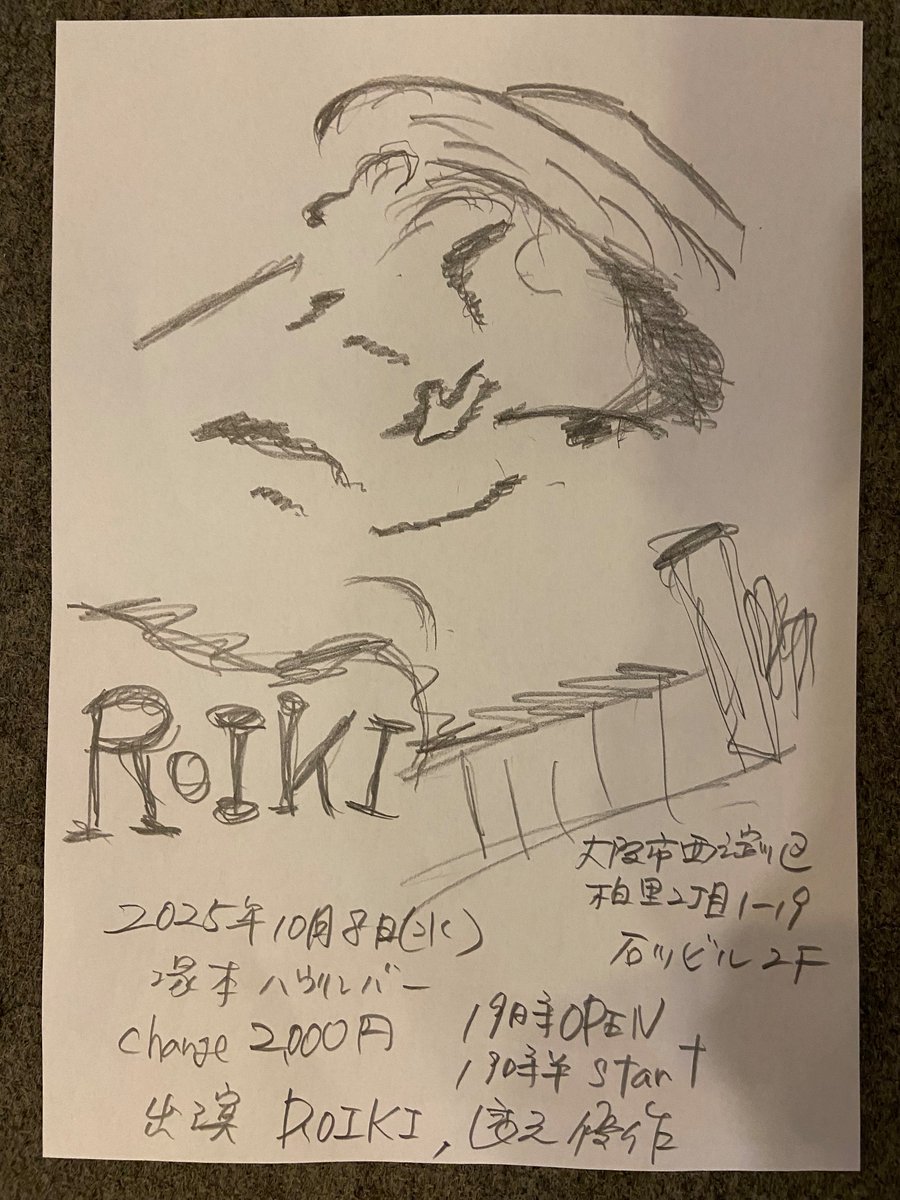 ROIKI
大阪市西淀川区
柏里2丁目1-19
石ツビル2F
2025年10月8日(水)
塚本ハウリンバー
Change 2,000円
19時OPEN
19時半 Start
出演 ROIKI, 修作